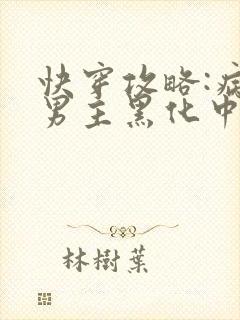 快穿攻略:病
男主黑化中
林樹葉